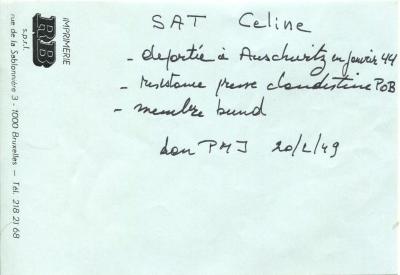 SAT Celine
- deportée à Auschwitz en janvier 44
- resistance presse clandestine POB
- membre bund
don PMJ 20/2/49
IMPRIMERIE
s.p.r.l.
rue de la Sablonnière 3 - 1000 Bruxelles - Tél. 218 21 68